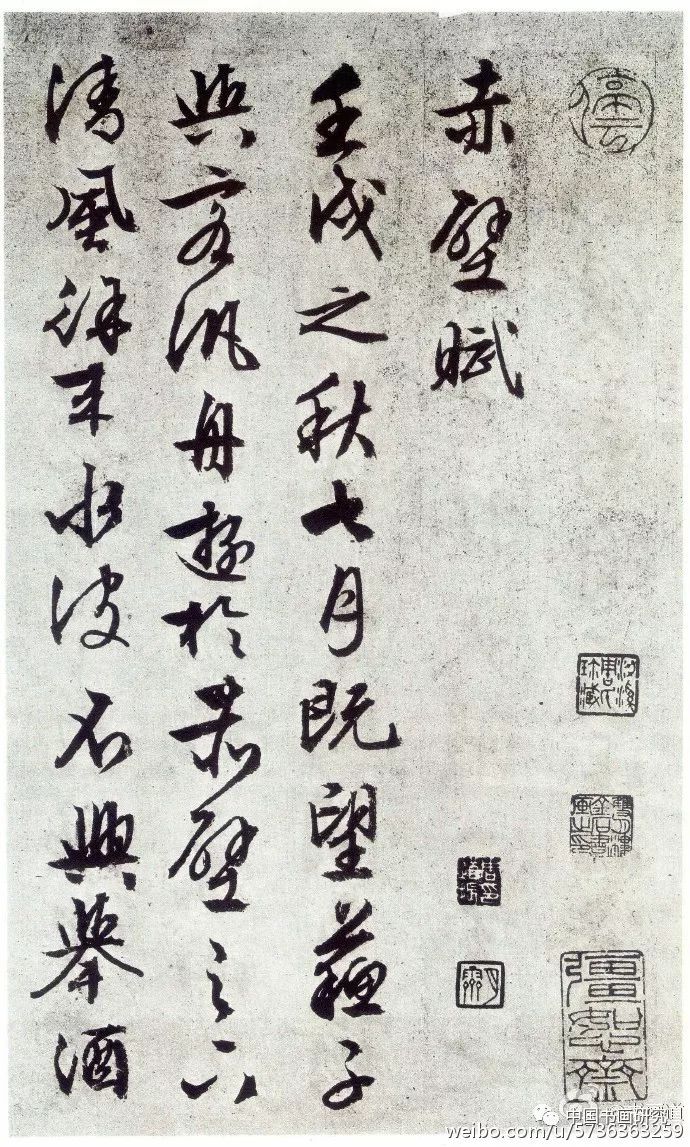 赤壁賦
壬戌之秋七月既望蘇子
與客汎舟遊於赤壁之下
清風徐來水波不興舉酒
彊恕齋
中国书画研究
weibo.com/u/5736363259